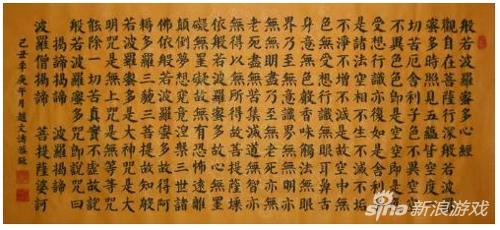 般若波羅蜜多心經
觀自在菩薩行深般若波羅
蜜多時照見五蘊皆空度一
切苦厄舍利子色不異空空
不異色色即是空空即是色
受想行識亦復如是舍利子
是諸法空相不生不滅不垢
不淨不增不減是故空中無
色無受想行識無眼耳鼻舌
身意無色聲香味觸法無眼
界乃至無意識界無無明亦
無無明盡乃至無老死亦無
老死盡無苦集滅道無智亦
無得以無所得故菩提薩埵
依般若波羅蜜多故心無罣
礙無罣礙故無有恐怖遠離
顛倒夢想究竟涅槃三世諸
佛依般若波羅蜜多故得阿
耨多羅三藐三菩提故知般
若波羅蜜多是大神咒是大
明咒是無上咒是無等等咒
能除一切苦真實不虛故說
般若波羅蜜多咒即說咒曰
揭諦揭諦 波羅揭諦
波羅僧揭諦 菩提薩婆訶
己丑年庚午月趙文
sina 新浪游戏